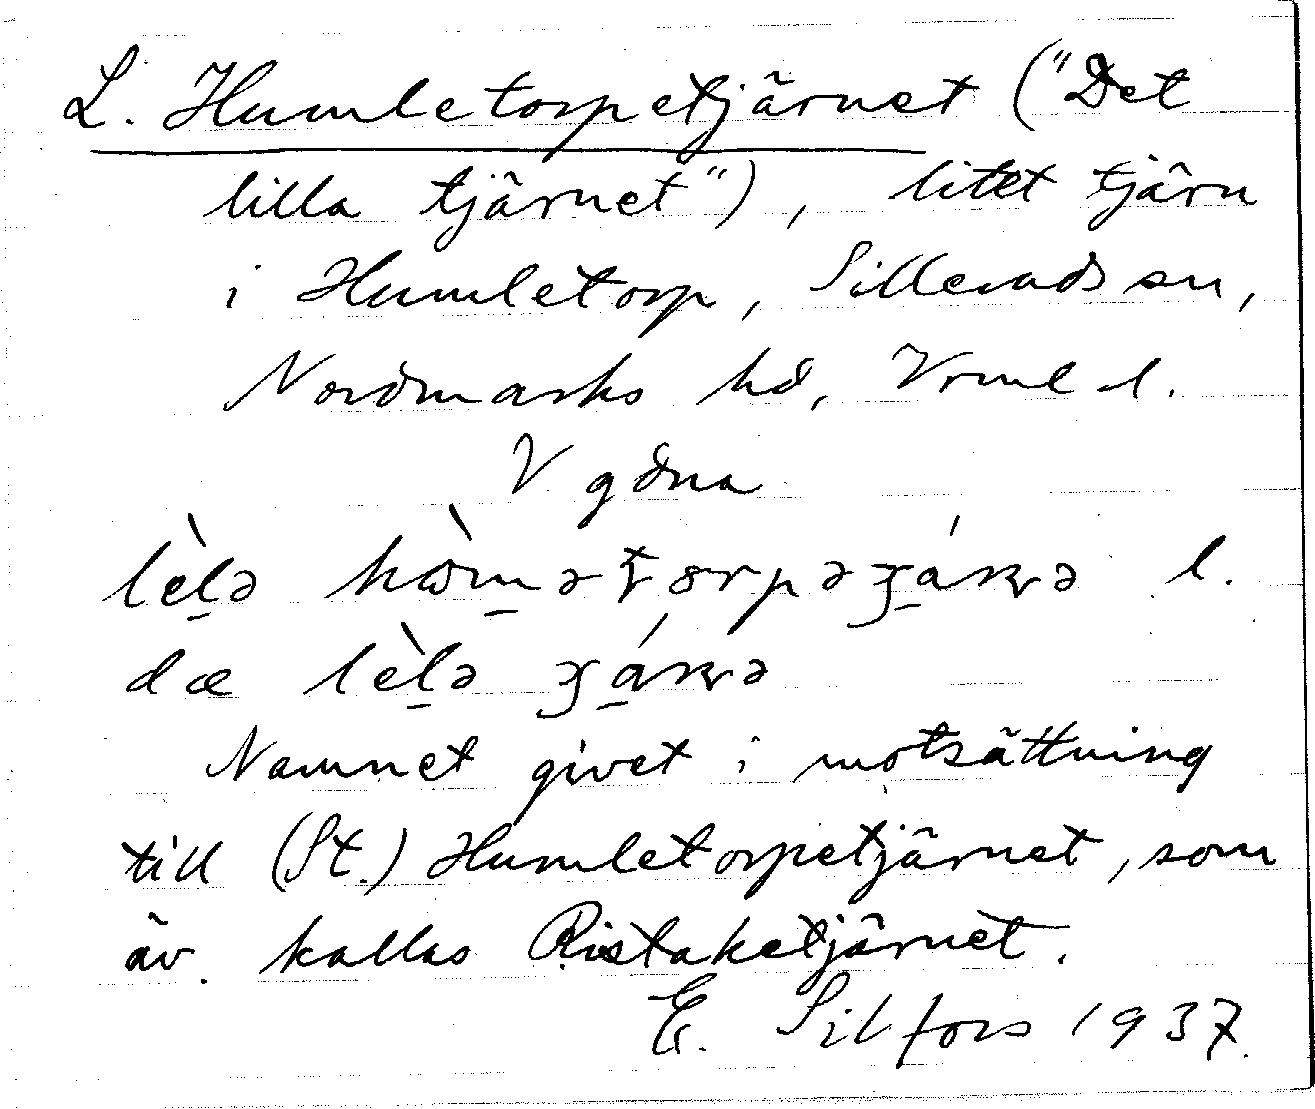 L. Humletorpetjärnet ("Det
lilla tjärnet"), litet tjärn
i Humletorp, Silleruds sn,
Nordmarks hd, Vrml l.
V gdna
lèlə l.
dæ lèlə
Namnet givet i motsättning
till (St.) Humletorpetjärnet, som
äv. kallas Ristaketjärnet.
E. Silfors 1937.